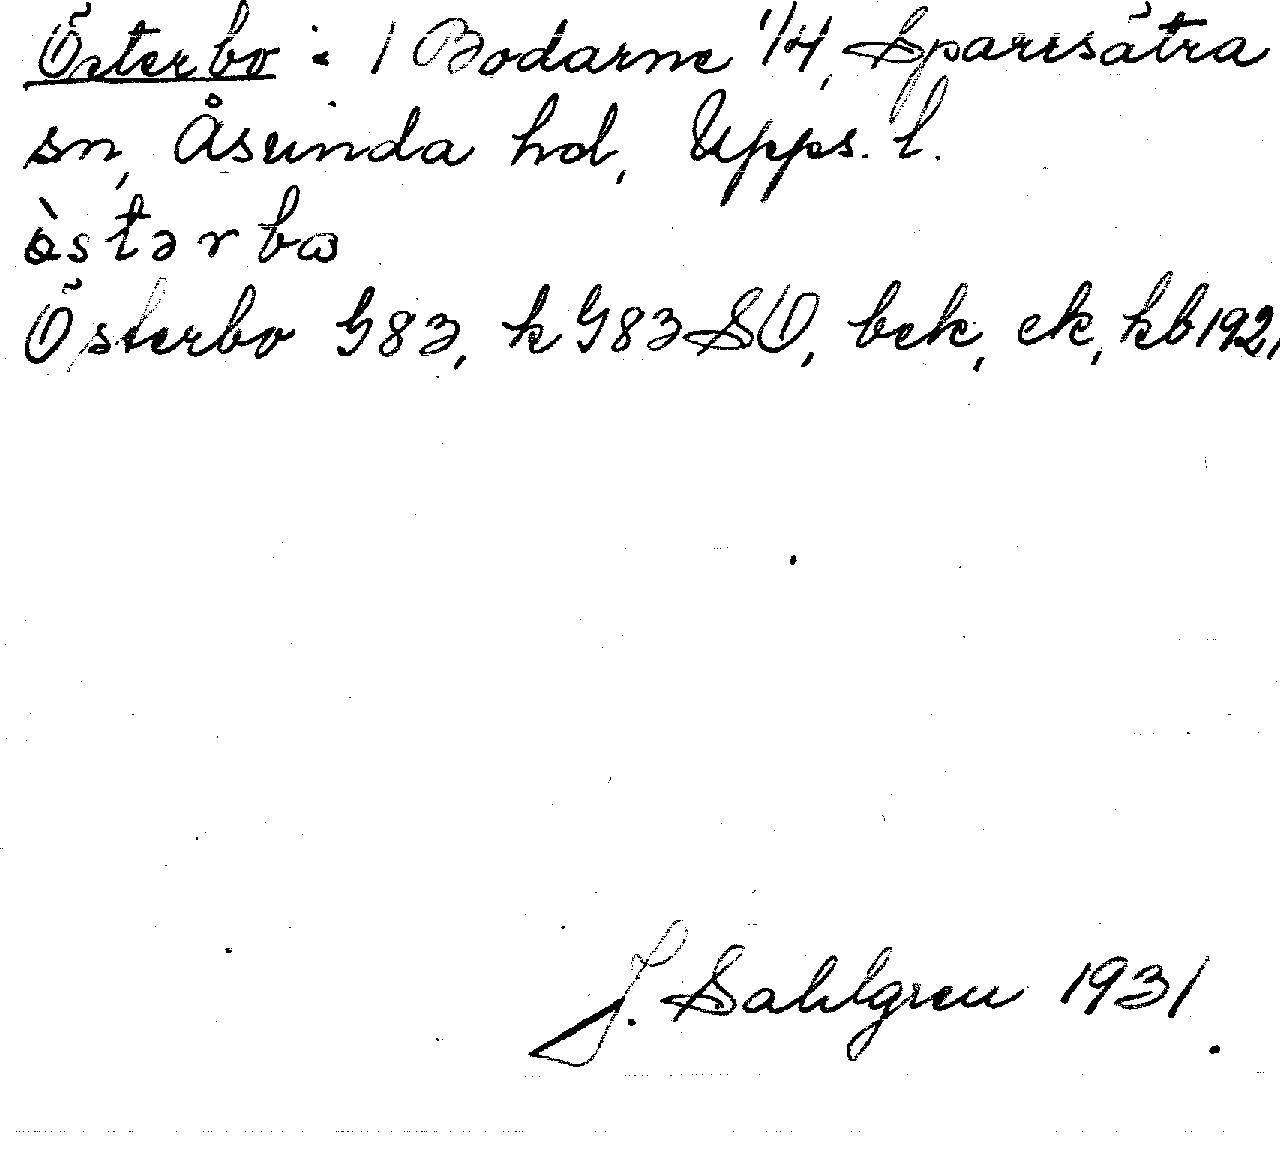 Österbo : 1 Bodarne 1/4, Sparrsätra
sn, Åsunda hd, Upps. l.
östərbo
Österbo G83, k G83 SO, bek, ek, kb 1921
J. Sahlgren 1931.